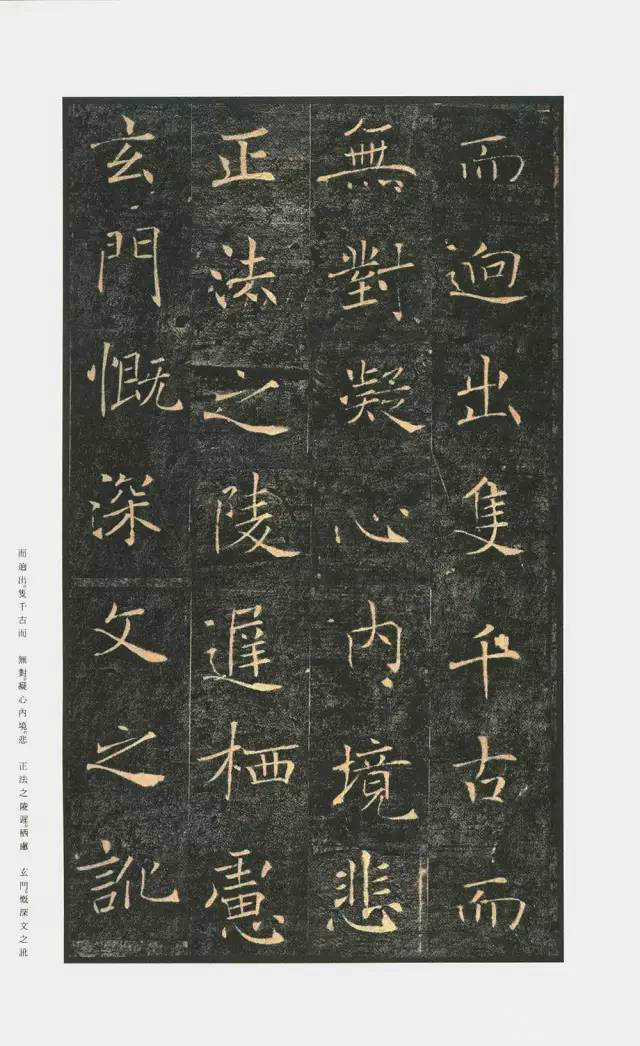 而逈出隻千古而
無對凝心內境悲
正法之陵遲栖慮
玄門慨深文之訛
而逈出。隻千古而 無對。凝心內境。悲 正法之陵遲。栖慮 玄門。慨深文之訛